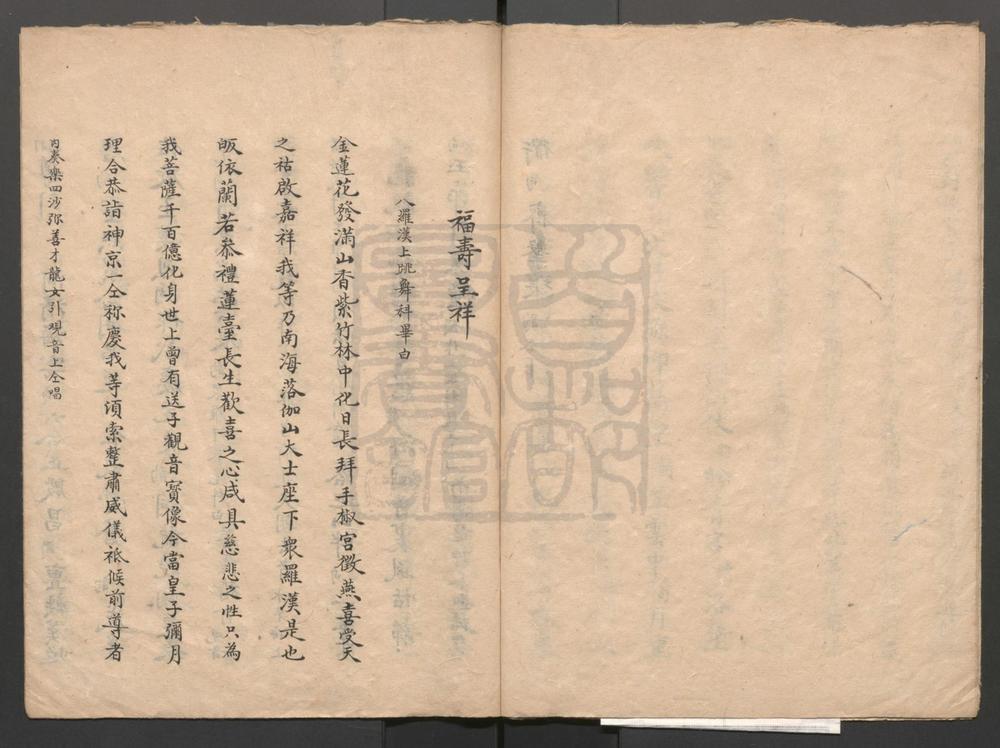 福壽呈祥
八羅漢上跳舞科畢白
金蓮花發滿山香紫竹林中化日長拜手椒宮徵燕喜受天
之祜啟嘉祥我等乃南海落伽山大士座下衆羅漢是也
皈依蘭若叅禮蓮臺長生歡喜之心咸具慈悲之性只為
我菩薩千百億化身世上曾有送子觀音寶像今當皇子彌月
理合恭詣神京一仝称慶我等須索整肅威儀祗候前導者
内奏樂四沙弥善才龍女引观音上仝唱